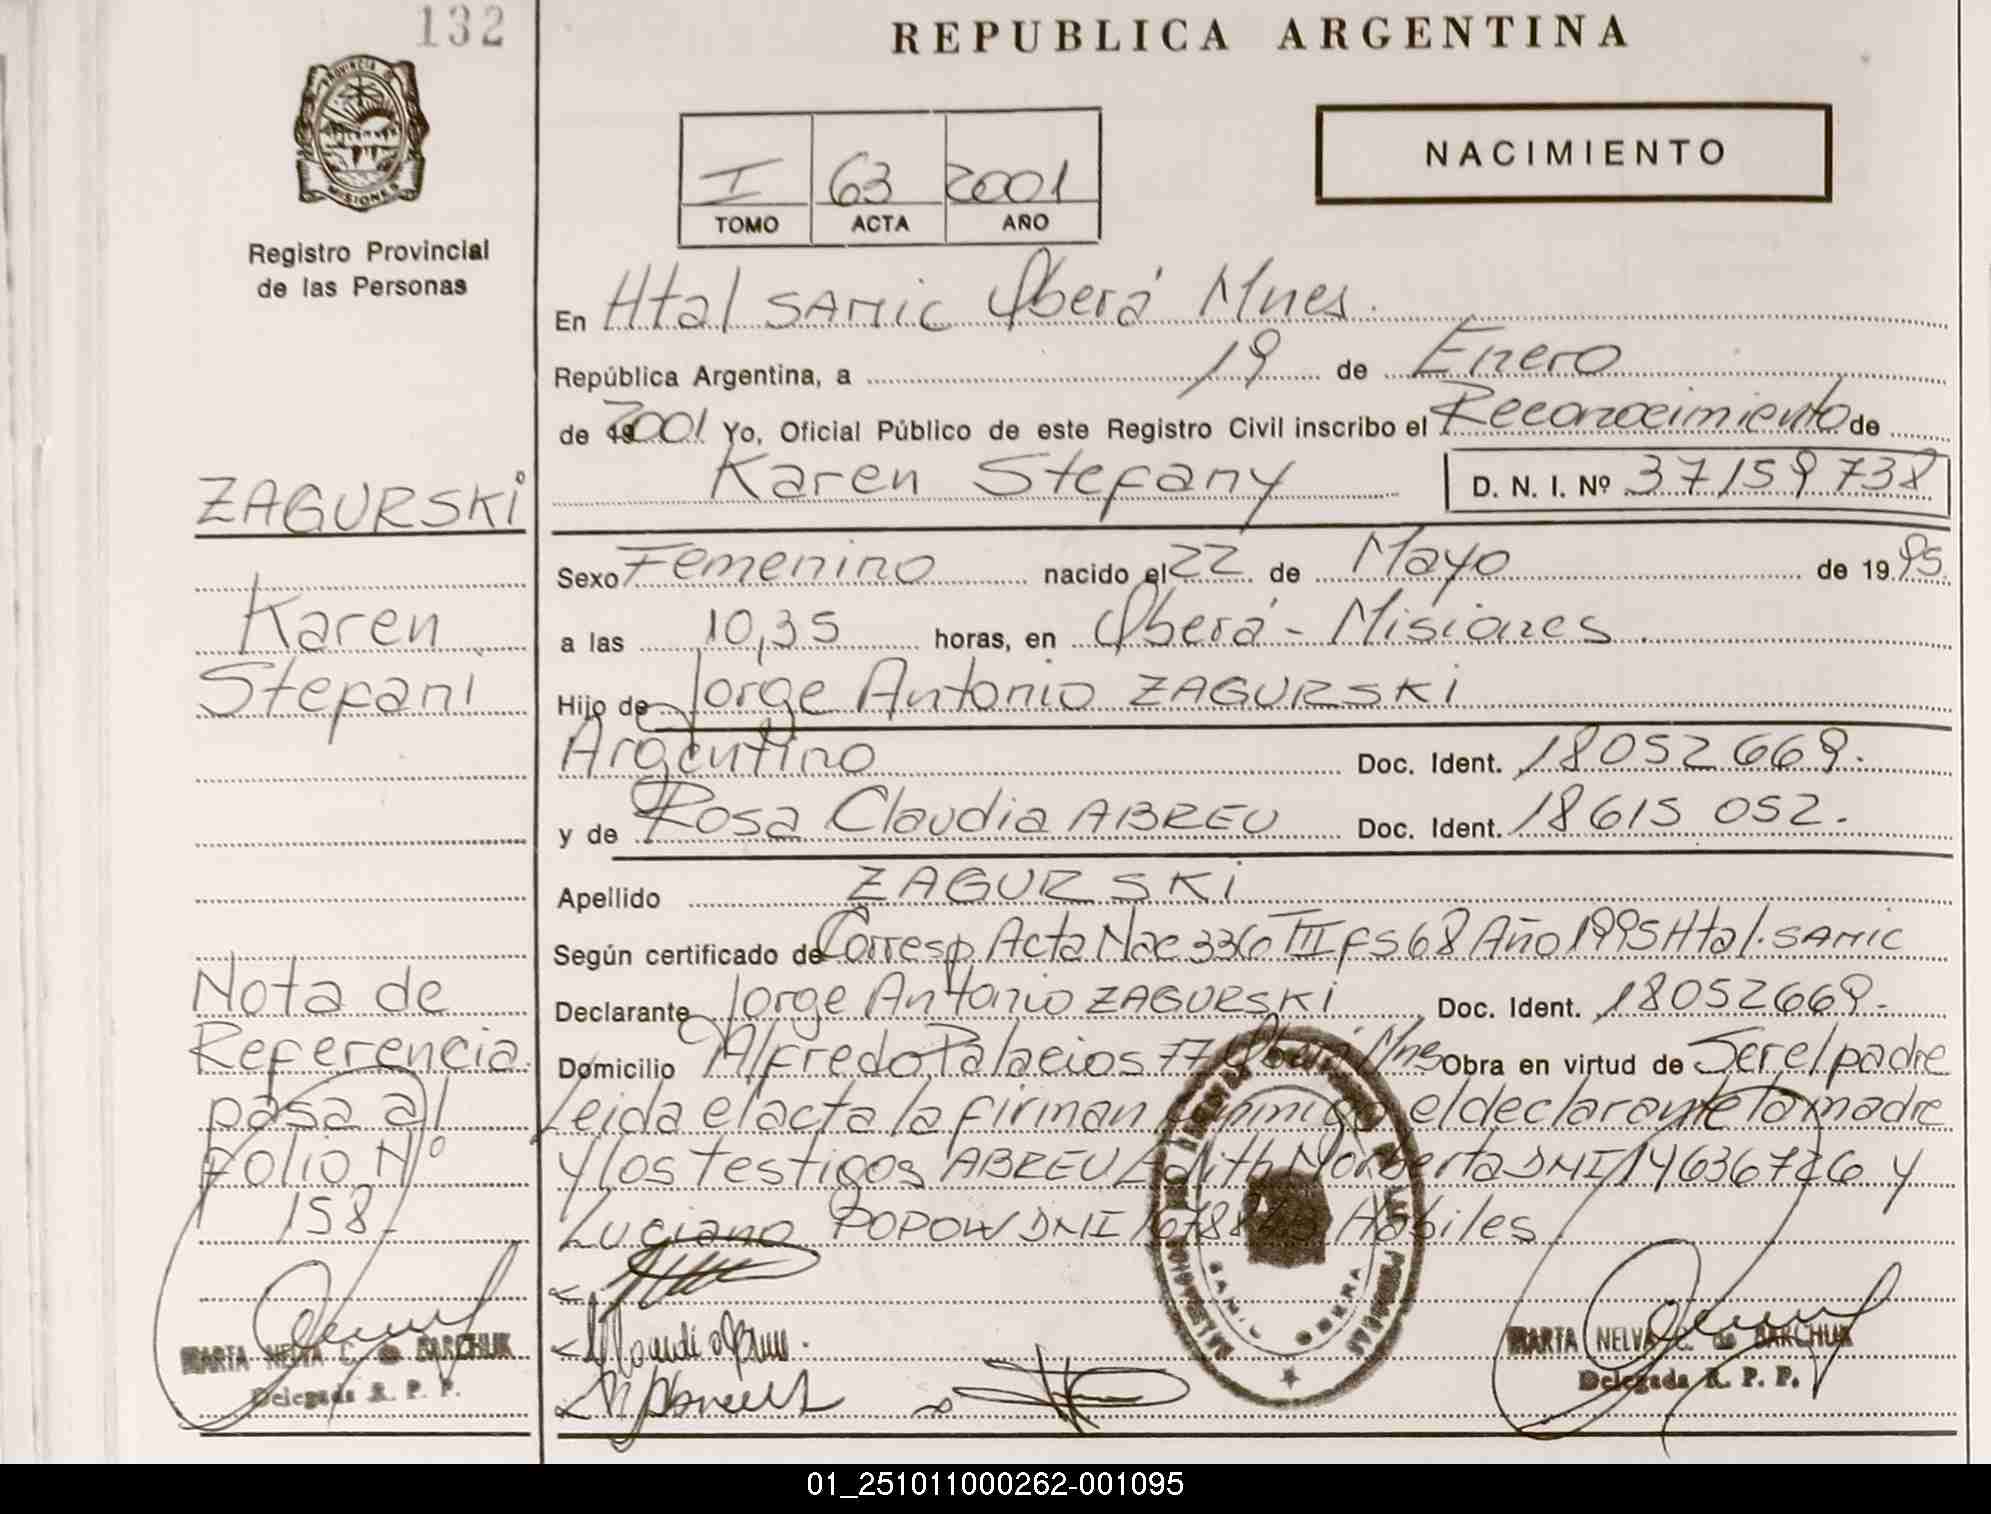 132
REPUBLICA ARGENTINA
PROVINCIA DE
MISIONES
Registro Provincial
de las Personas
I 63 2001
TOMO ACTA AÑO
NACIMIENTO
En Htal SAMIC Oberá Mnes.
República Argentina, a 19 de Enero
de 2001 Yo, Oficial Público de este Registro Civil inscribo el Reconocimiento de
Karen Stefany D. N. I. Nº 37159738
Sexo Femenino nacido el 22 de Mayo de 1995
a las 10,35 horas, en Oberá - Misiones
Hijo de Jorge Antonio ZAGURSKI
Argentino Doc. Ident. 18052669.
y de Rosa Claudia ABREU Doc. Ident. 18615 052.
Apellido ZAGURSKI
Según certificado de Corresp Acta Nac 336 TIII F568 Año 1995 Htal. SAMIC
Declarante Jorge Antonio ZAGURSKI Doc. Ident. 18052669.
Domicilio Alfredo Palacios 77 Oberá Mnes Obra en virtud de Ser el padre
Leida el acta la firman conmigo el declarante la madre
y los testigos ABREU Edith Norberta DNI 14636726 y
Luciano POPOW DNI Hábiles
ZAGURSKI
Karen
Stefani
Nota de
Referencia
pasa al
Folio Nº
158.
MARTA NELVA C. de BARCHUK
Delegada R. P. P.
SAMIC OBERA
MARTA NELVA C. de BARCHUK
Delegada R. P. P.
01_251011000262-001095